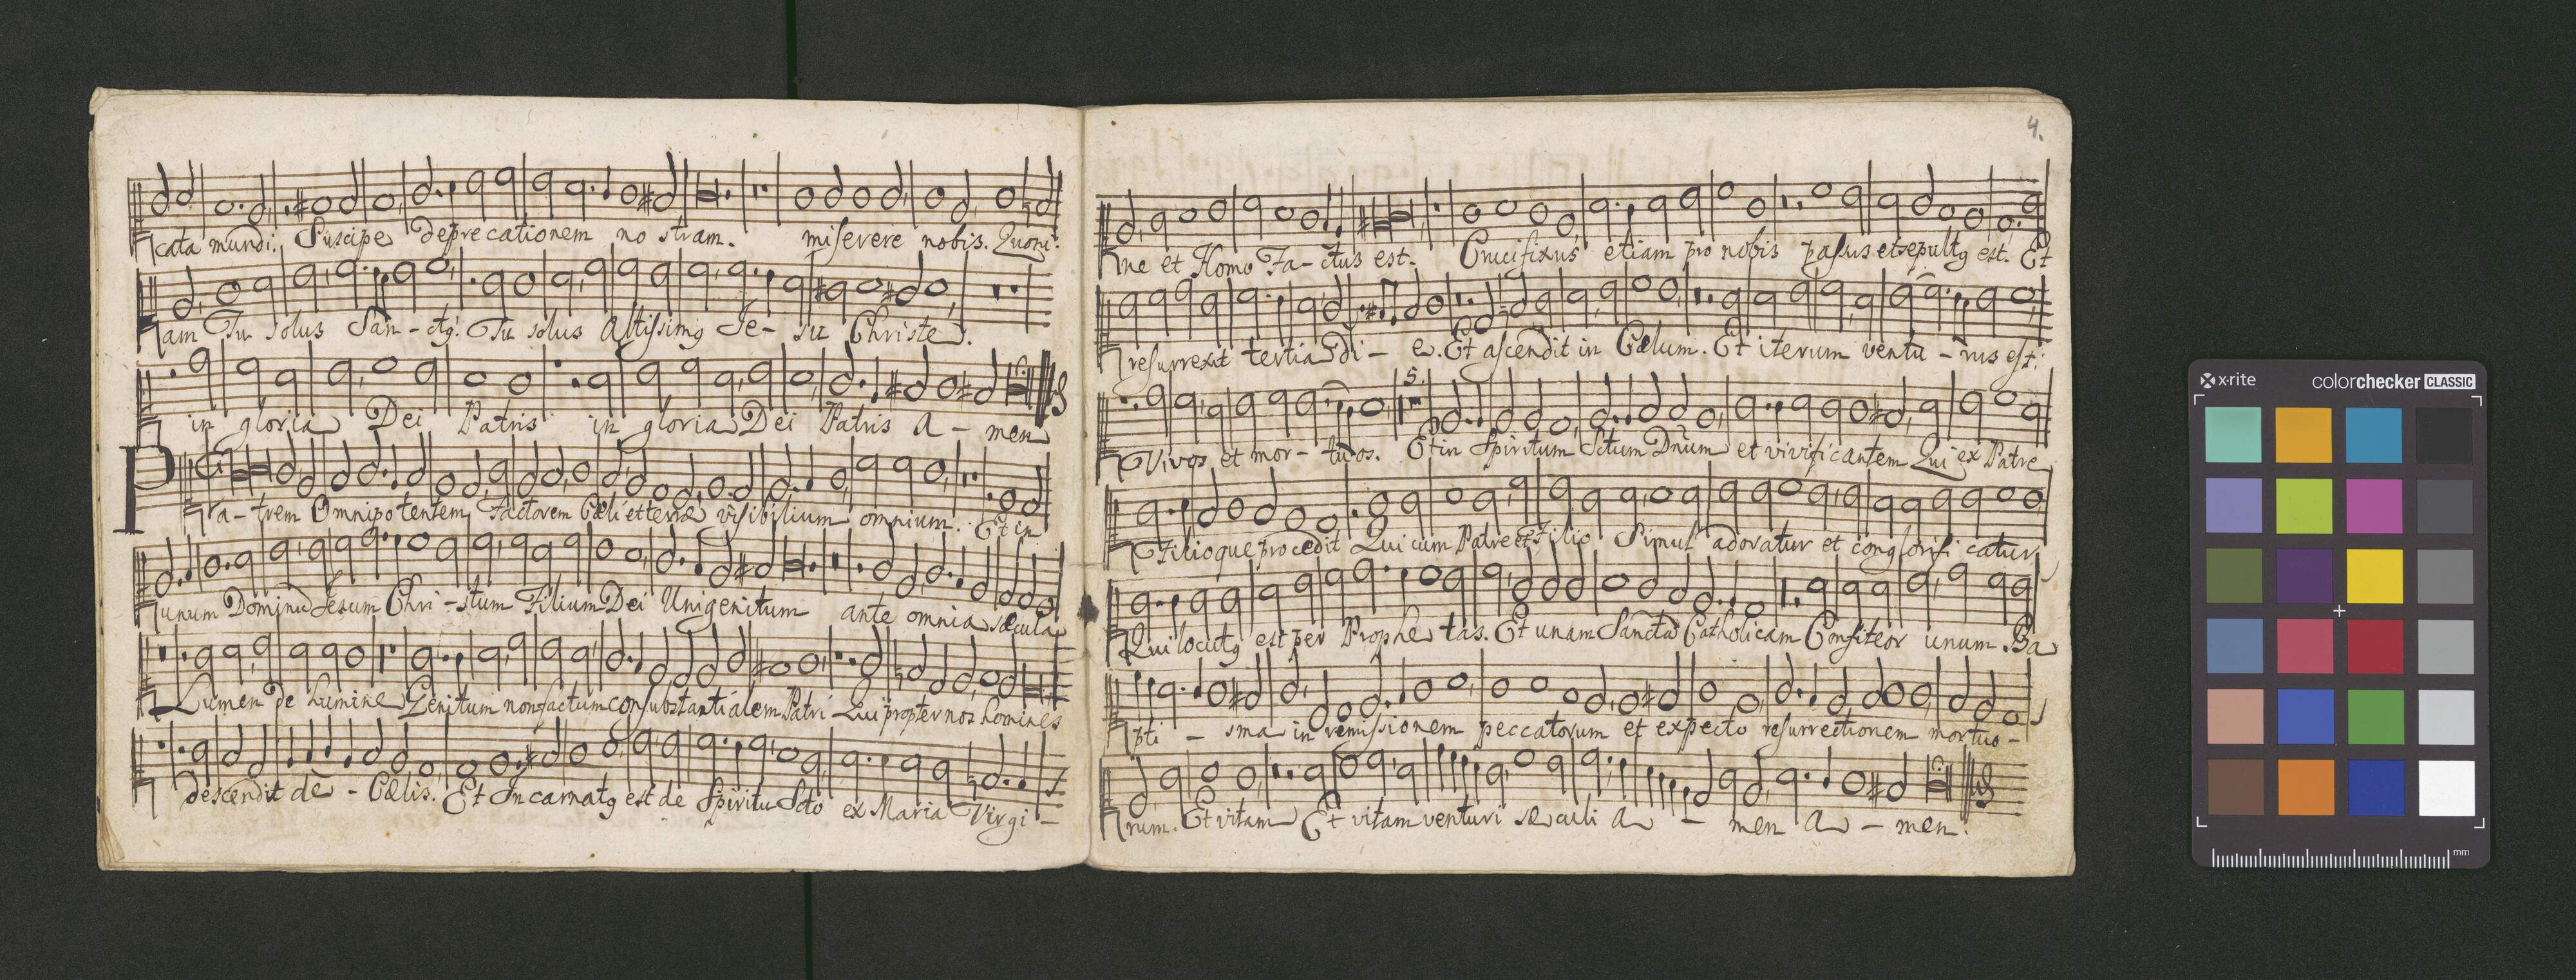 cata mundi. Suscipe deprecationem no stram. miserere nobis. Quoni:
am Tu solus San-ctg. Tu solus Altissimg Je- su Christe.
in gloria Dei Patris in gloria Dei Patris A-men
Pa-trem Omnipotentem Factorem Cæli et terræ visibilium omnium. Et in
unum Dominū Jesum Chri-stum Filium Dei Unigenitum ante omnia sæcula
Lumen de Lumine Genitum non factum consubstantialem Patri Qui propter nos homines
descendit de-Cælis. Et Incarnatg est de Spiritu Scto ex Maria Virgi-
4.
ne et Homo Fa-ctus est. Crucifixus etiam pro nobis passus et sepultg est. Et
resurrexit tertia Di-e. Et ascendit in Cælum. Et iterum ventu-rus est:
5.
Vivos et mor-tuos. Et in Spiritum Sctum Dnum et vivificantem Qui ex Patre
Filioque procedit Qui cum Patre et Filio Simul adoratur et conglorifi catur
Qui locutg est per Prophe tas. Et unam Sancta Catholicam Confiteor unum. Ba
pti - sma in remissionem peccatorum et expecto resurrectionem mortuo-
rum. Et vitam Et vitam venturi sæculi A - men A - men.
x-rite
colorchecker CLASSIC
mm